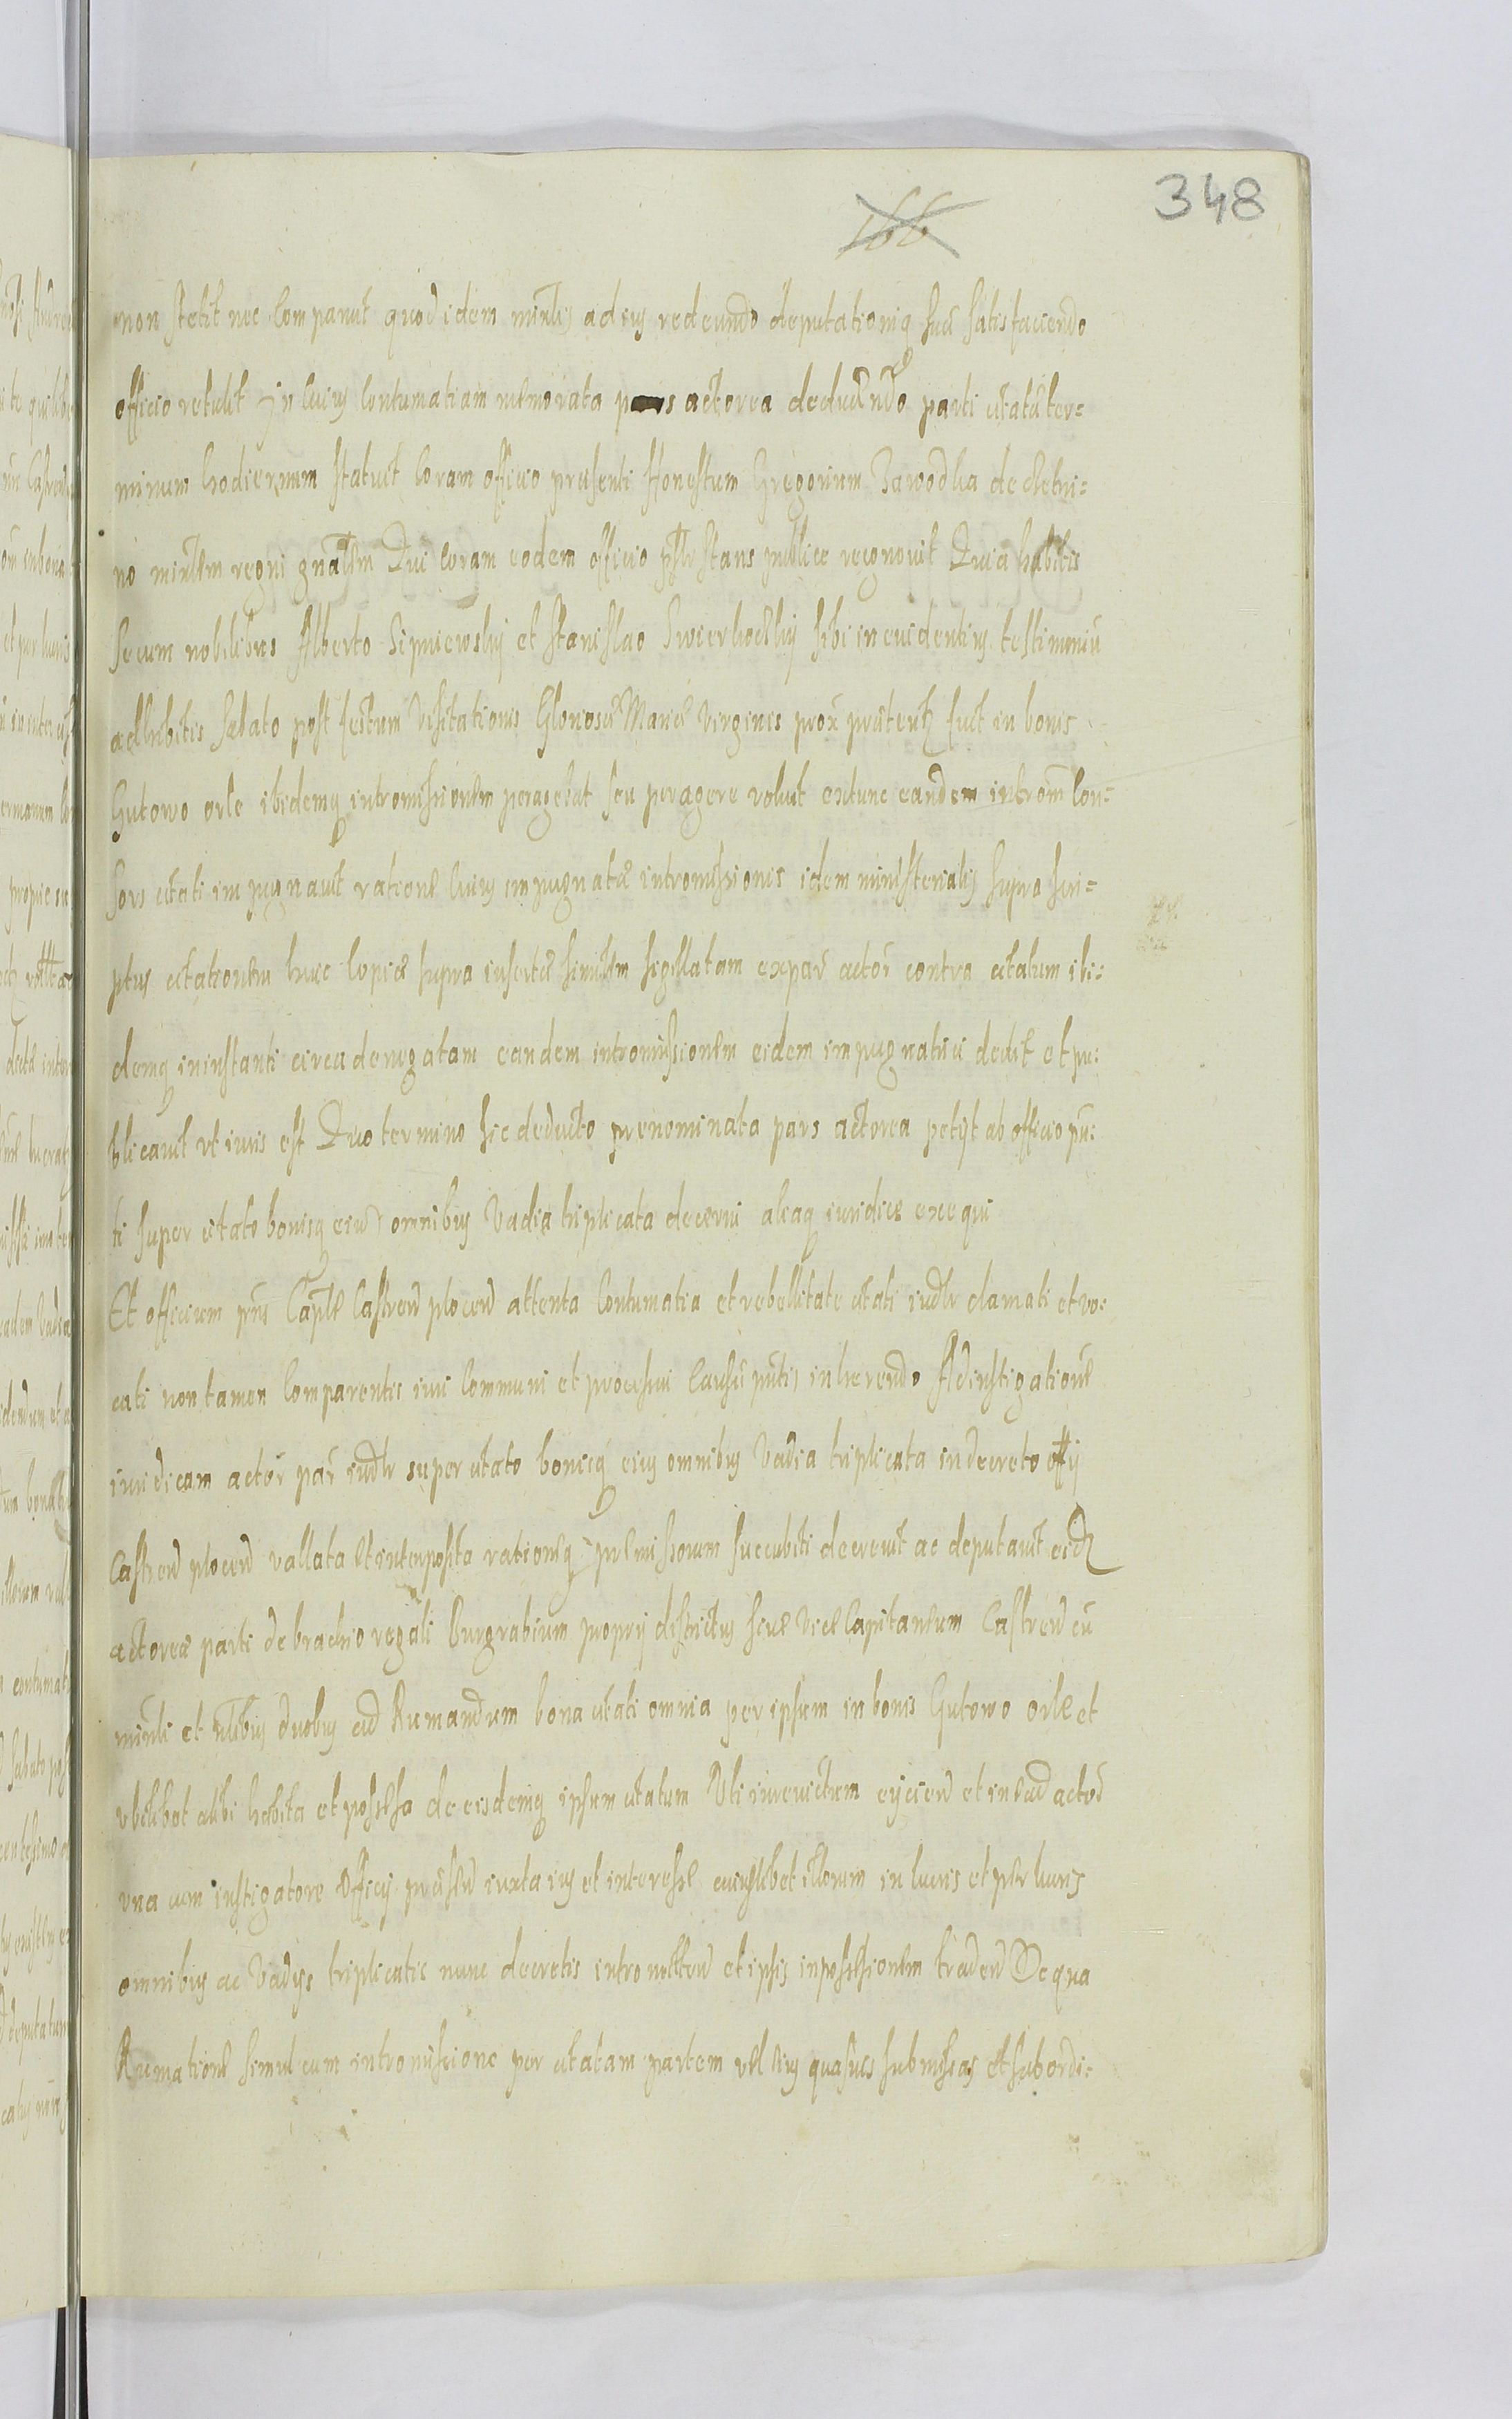 348
166
non stetit nec Comparuit quod idem minlis ad ius redeundo deputationiq suae satisfaciendo
officio retulit In Cuius Contumatiam memorata pars actorea deducendo parti citatae ter=
minum hodiernum statuit Coram officio praesenti Honestum Gregorium Zawodka de
no minlem regni gnalem Qui Coram eodem officio psr stans publice recognovit Quia habitis
secum nobilibus Alberto Lipniewsky et Stanislao Swierkoczky sibi in euidentius testimoniu
adhibitis Sabato post festum Visitationis Gloriosae Mariae Virginis prox praeterit fuit in bonis
Gutowo orle ibidemq intromissionem peragebat seu peragere voluit extunc eandem introm Con=
sors citati impugnauit rationae Cuius impugnatae intromissionis idem ministerialis suprascri=
ptus citationem huic Copiae supra insertae similem sigillatam ex par actor contra citatum ibi=
demq in instanti circa denegatam eandem intromissionem eidem impugnatrici dedit et pu:
blicauit vt iuris est Quo termino sic deducto prenominata pars actorea petyt ab officio pn:
ti super citato bonisq eius omnibus Vadia triplicata decerni aliaq iuridice exequi
Et officium pns Captle Castren plocen attenta Contumatia et rebellitate citati iudlr clamati et vo:
cati non tamen Comparentis iuri Communi et processui Causae pntis inherendo Ad instigationem
iuridicam actor par iudlr super citato bonisq eius omnibus Vadia triplicata in decreto offy
Castren plocen vallata et interposita rationeq premissorum succubiti decreuit ac deputauit eid
actoreae parti de brachio regali Burgrabium propry districtus siue Vice Capitaneum Castren cu
minli et nlibus duobus ad Rumandum bona citati omnia per ipsum in bonis Gutowo orle et
vbilibet alibi habita et possessa de eisdemq ipsum citatum Vti iureuictum eyciend et in ead actor
vna cum instigatore Officy praesen iuxta ius et interesse cuiuslibet illorum in lucris et per lucris
omnibus ac Vadys triplicatis nunc decretis intromitten et ipsis in possessionem traden De qua
Rumatione simul cum intromissione per citatam partem vel eius quasuis submissas et subordi=